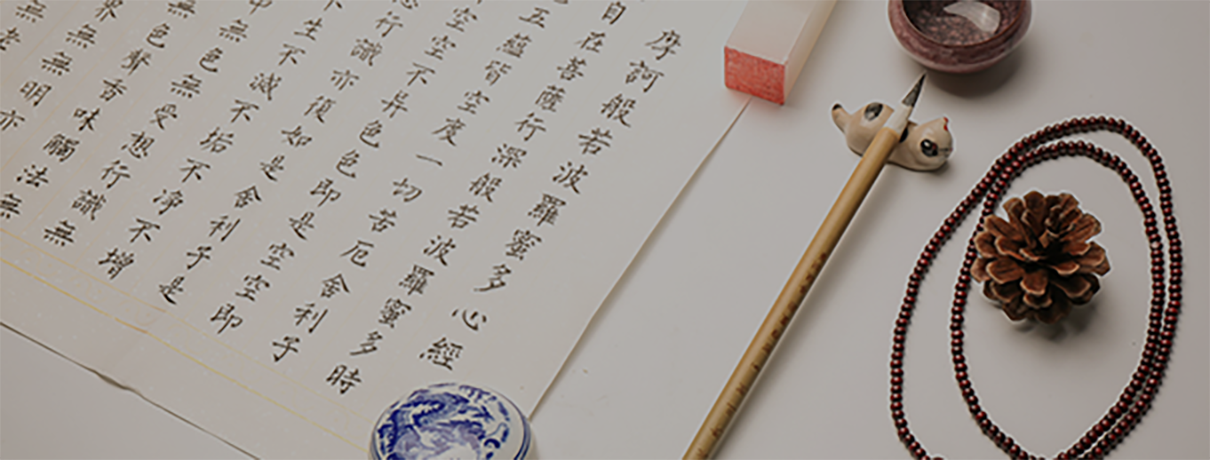 摩訶般若波羅蜜多心經
自在菩薩行深般若波羅蜜多時
五蘊皆空度一切苦厄舍利子
空空不异色色即是空空即
行識亦復如是舍利子是
生不滅不垢不淨不增
無色無受想行識無
無色聲香味觸法無
界無無明亦
無老